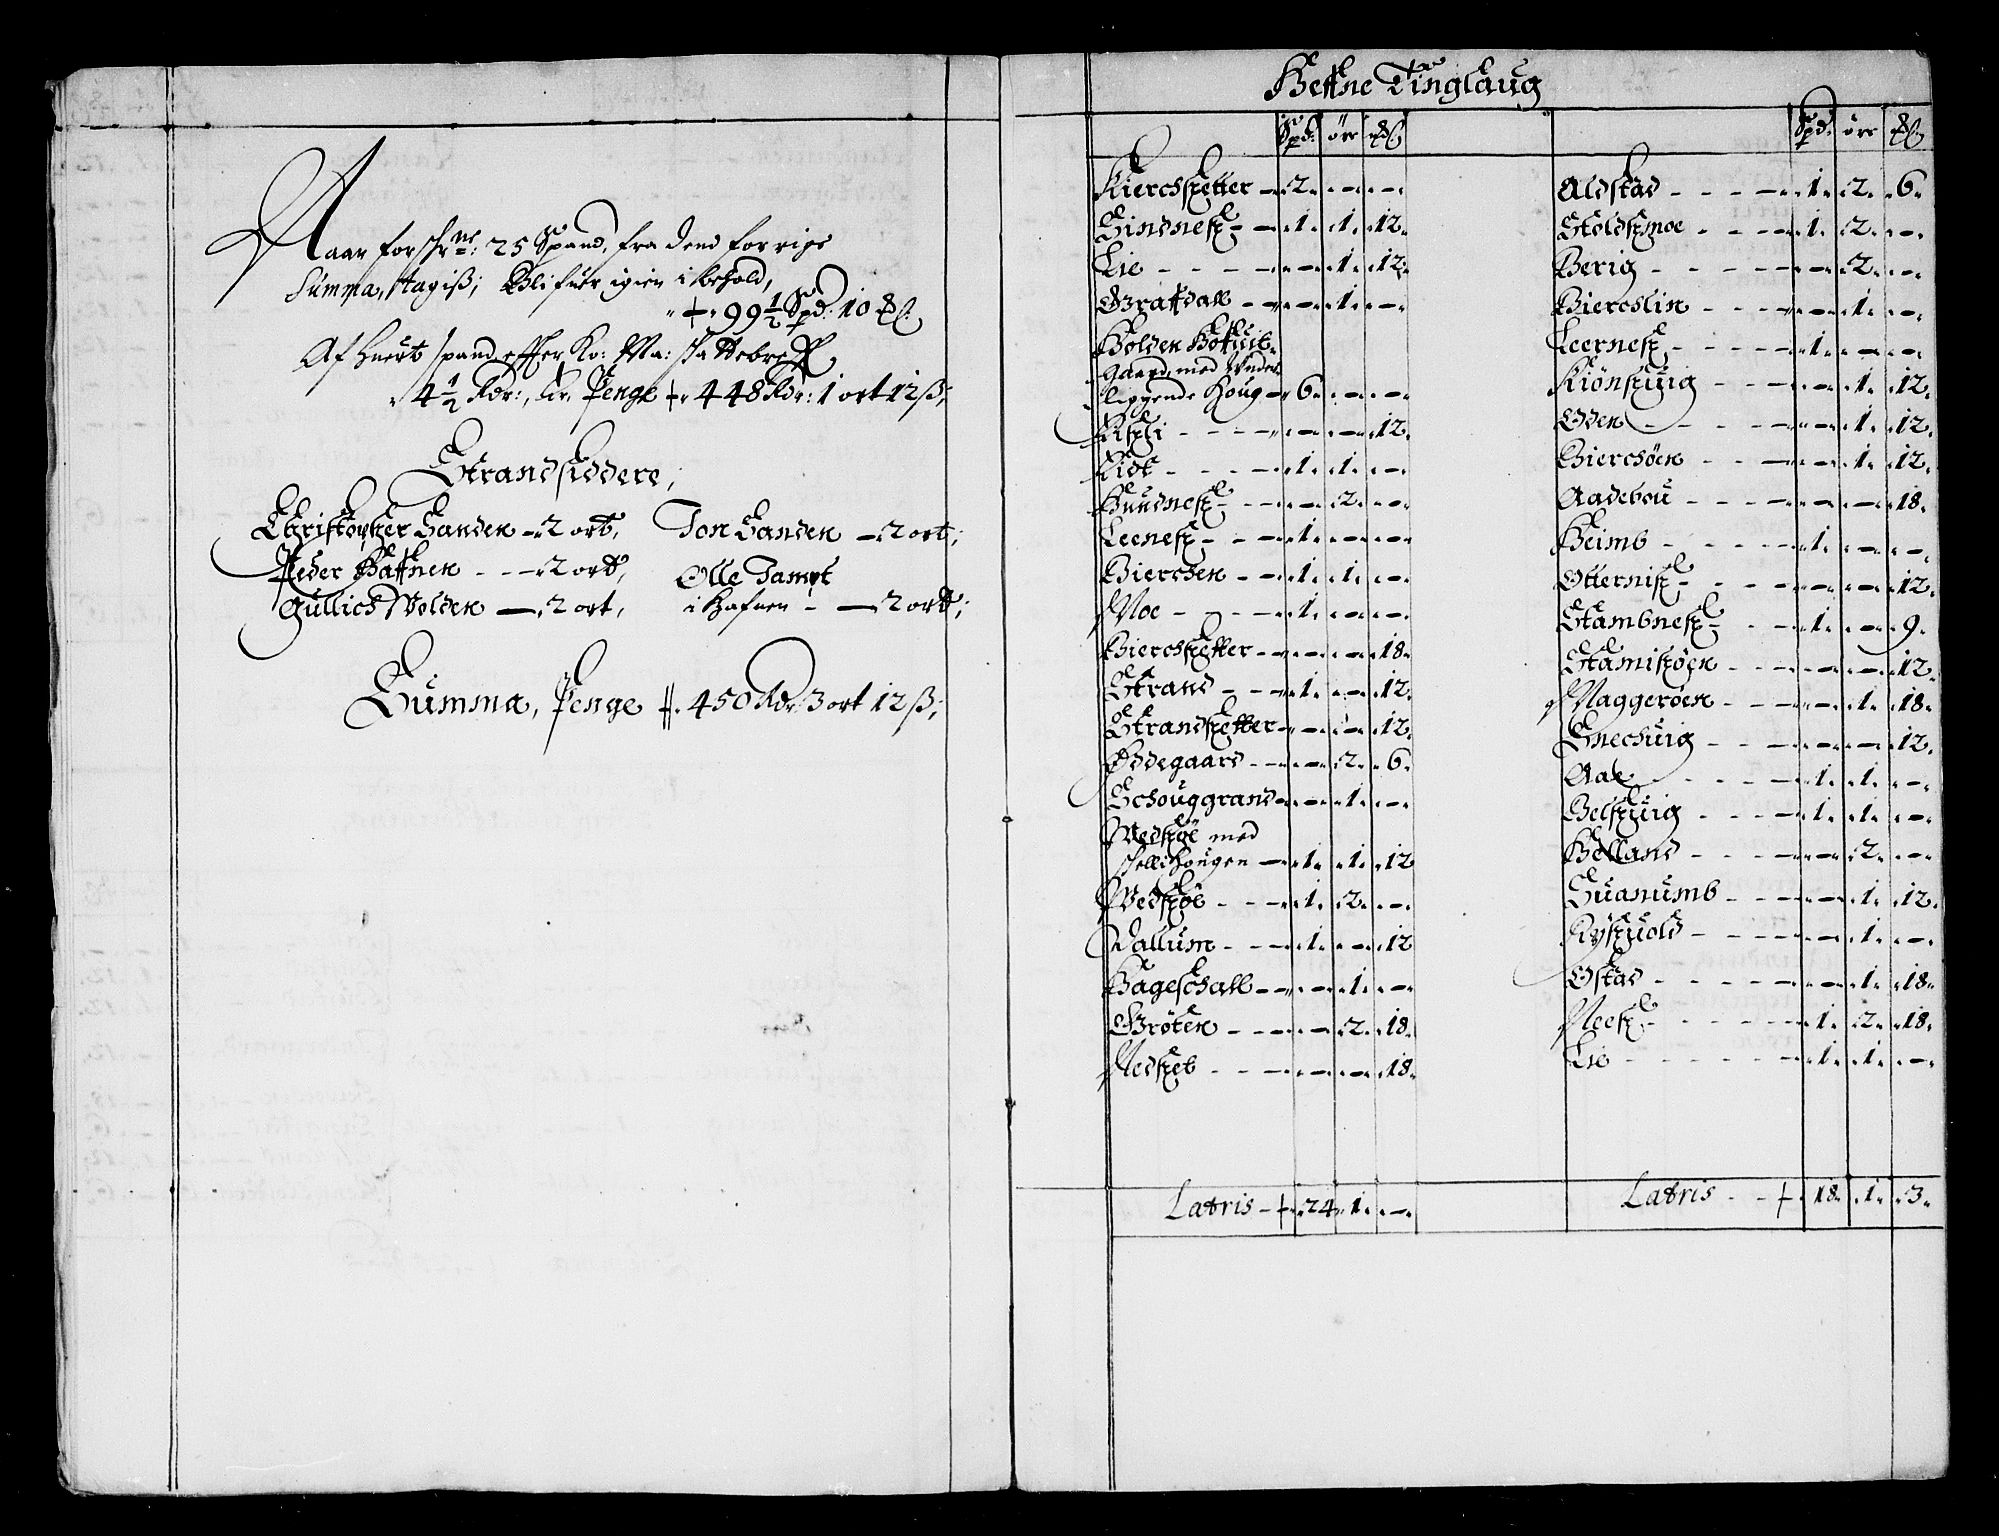 Naar forschr:ne: 25 Spand, fra dend forrige
Summa, tagiß; Blifuer igien i behold,
99 1/2 Spd: 10 mkl:
Af huert spand effter Ko: Ma: schattebreff
4 1/2 Rdr:, er, Penge 448 Rdr: 1 ort 12 ß;
Strandsiddere;
Christopher Sanden — 2 ort, Jon Sanden — 2 ort;
Peder Haffnen - - — 2 ort, Olle Tampt
Gullich Wolden — 2 ort, i Hafnen - — 2 ort;
Summa, Penge 450 Rdr 3 ort 12 ß;
Heffne Tinglaug
Spd: öre mkl
Kierchsetter — 2 — —
Sindnes — 1 1 12
Lie - - - - — 1 12
Graffdall — — 1 —
Holden Hofuit
gaard med Under
liggende Houg — 6 — —
Risli - - - — — 12
Lidt - - - 1 1 —
Hundnes - - — 2 —
Leenes - - 1 — —
Bierchen - - 1 1 —
Moe - - - 1 — —
Bierchsetter — — — 18
Strand - - - 1 — 12
Strandsetter — — 12
Ødegaard - - — 2 6
Schouggrand — 1 —
Wedsöe med
schellihougen — 1 1 12
Wedsöe - - 1 2 —
Dallum - - - 1 — 12
Hageschall — — 1 —
Gröten - - - — 2 18
Nedseb - - - — — 18
Latris - 24 1 —
Spd: öre mkl
Aldstad - - - - 1 2 6
Stoldsmoe - - - 1 2 —
Berig - - - - — 2 —
Bierchlin - - - — 1 —
Leernes - - - - 1 — —
Kiönsuig - - - — 1 12
Oden - - - - — 1 12
Bierchöen - - - — 1 12
Aadebou - - - - — — 18
Heimb - - - - 1 — —
Otternis - - - — — 12
Stambnes - - - 1 — 9
Stamisöen - - - — — 12
Maggeröen - - - — 1 18
Snechuig - - - — — 12
Aae - - - - 1 1 —
Belsuig - - - - 1 1 —
Belland - - - — 2 —
Suanumb - - - — 1 12
Rÿsuold - - - — 1 —
Ostad - - - - — 1 18
Nees - - - - 1 2 18
Lie - - - - - 1 1 —
Latris - - 18 1 3